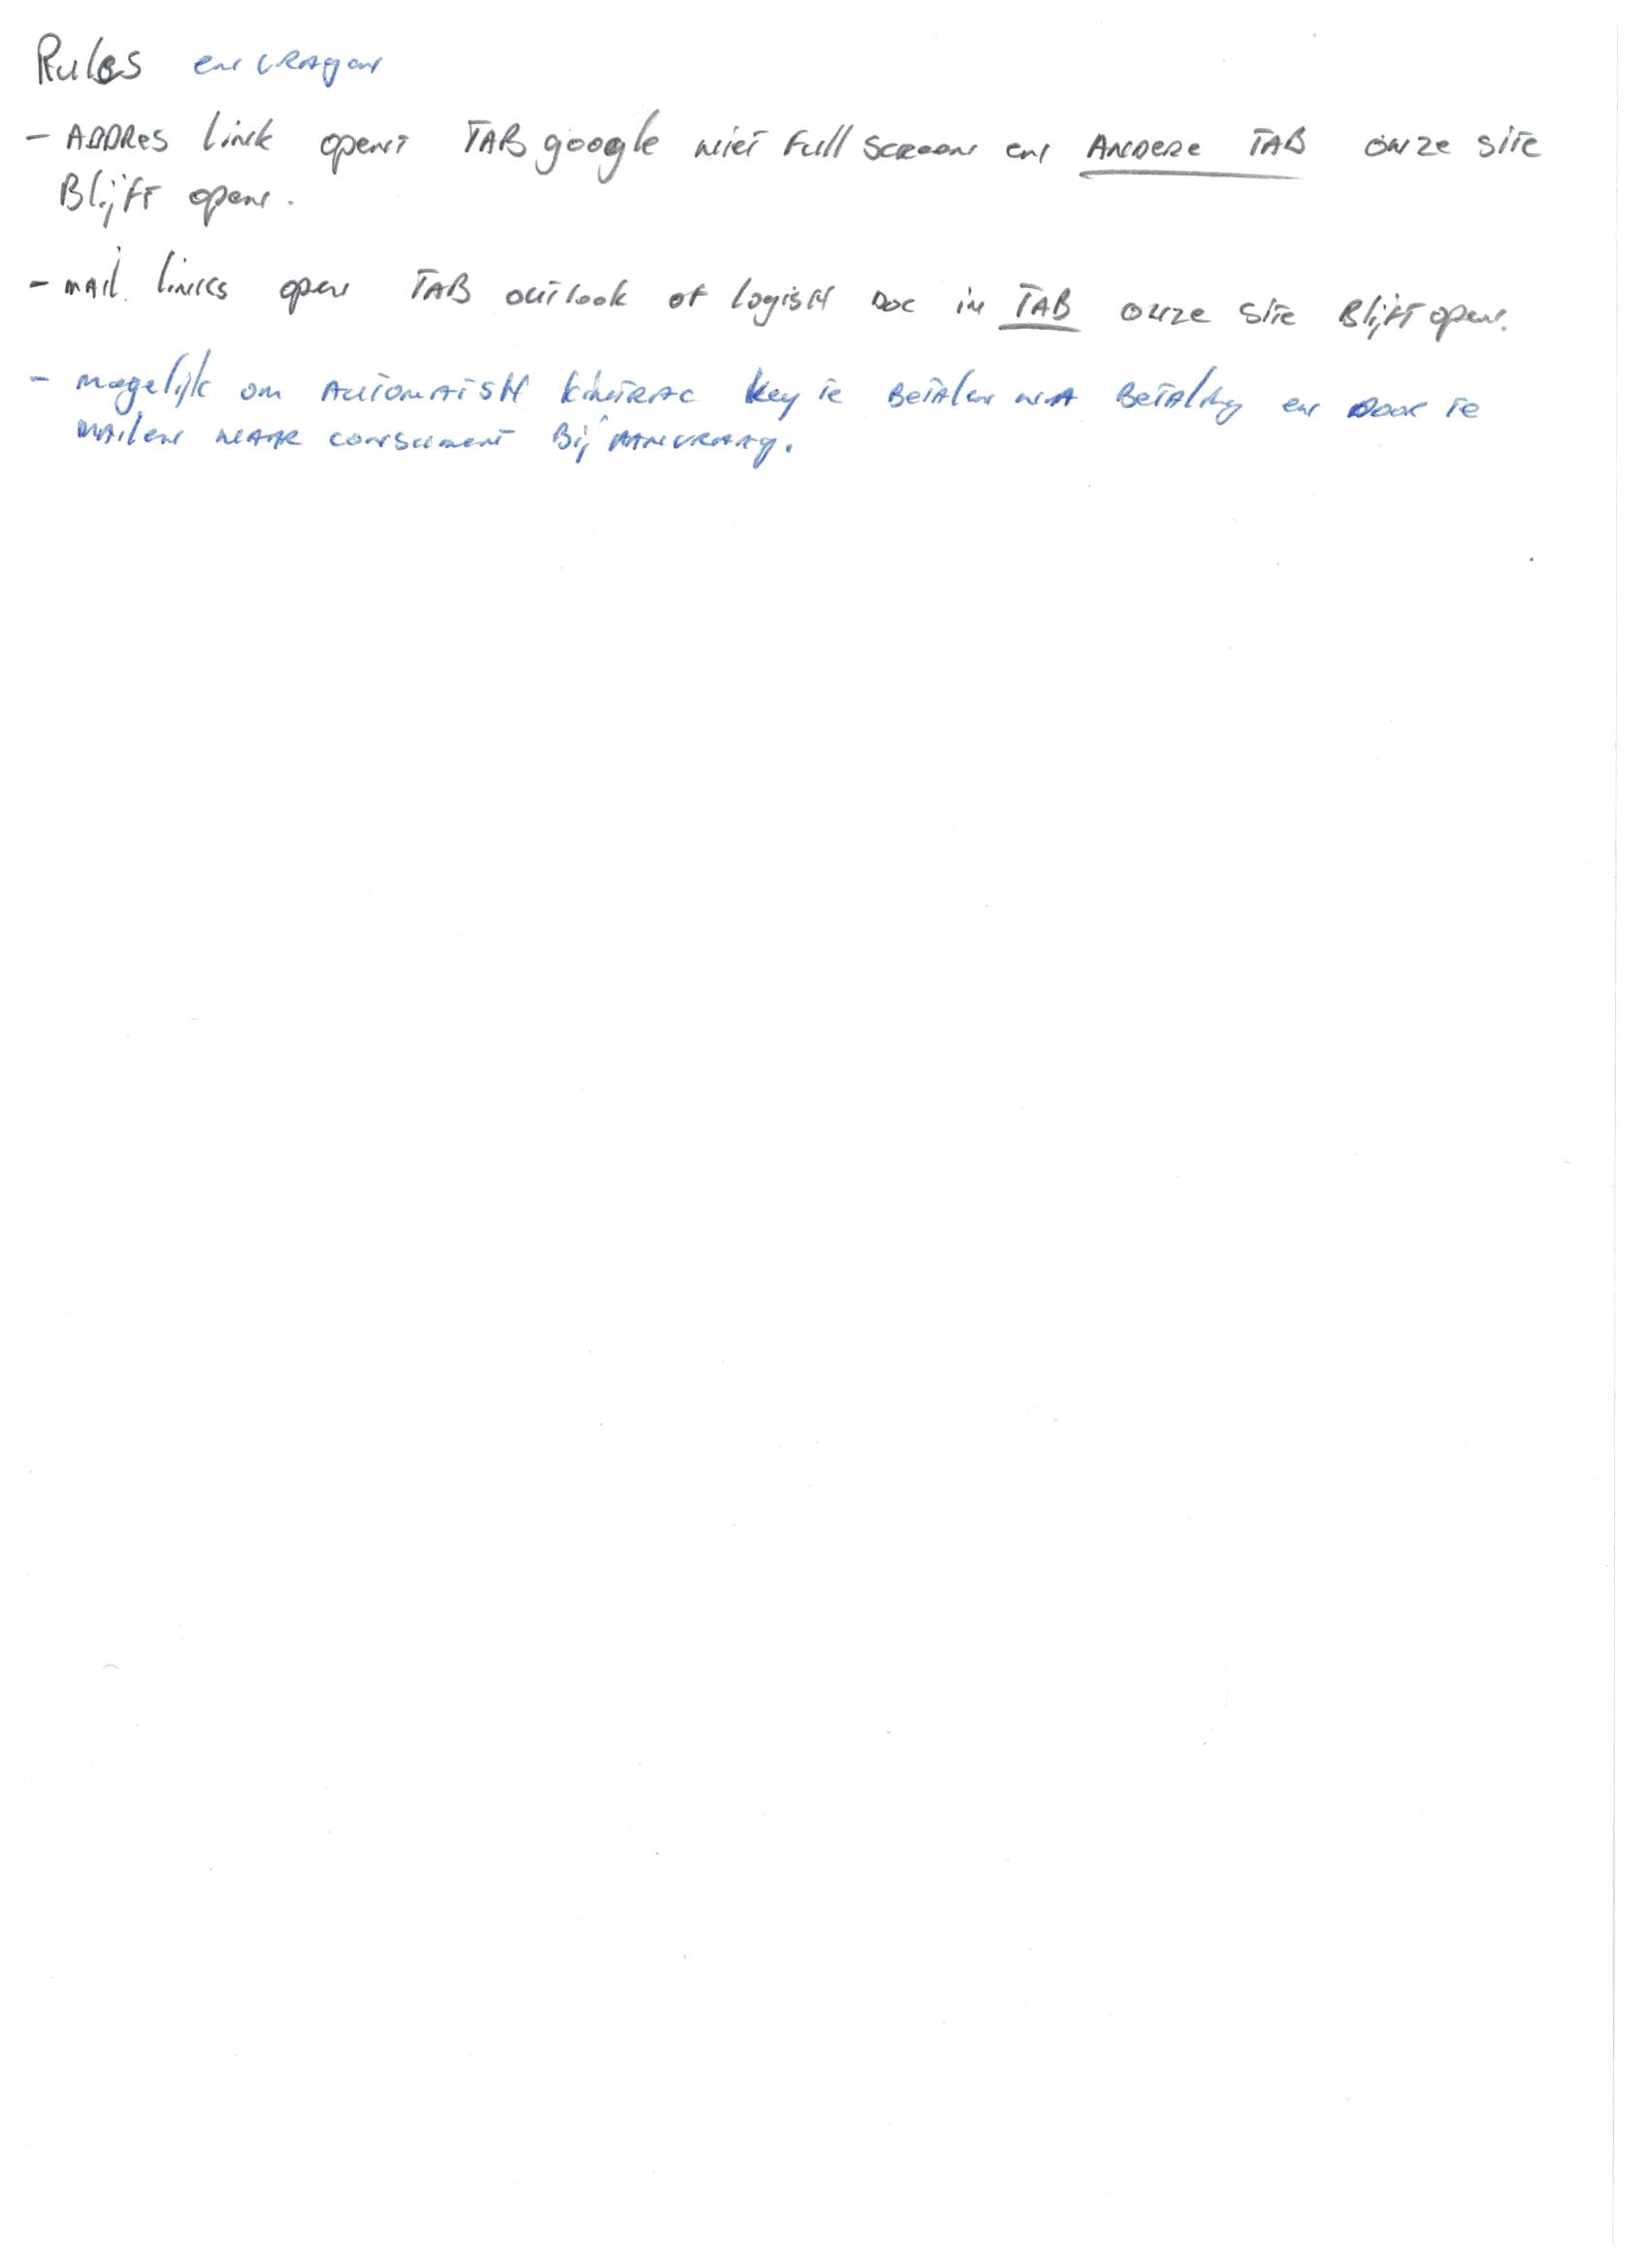 Rules en vragen
- ADDRES link opent TAB google niet Full screen en ANDERE TAB onze site
Blijft open.
- mail links open TAB outlook of logisH Doc in TAB onze site Blijft open.
- mogelijk om AUTOMATISH key te Betalen NA Betaling en Door te
mailen NAAR consument Bij AANVRAAG.